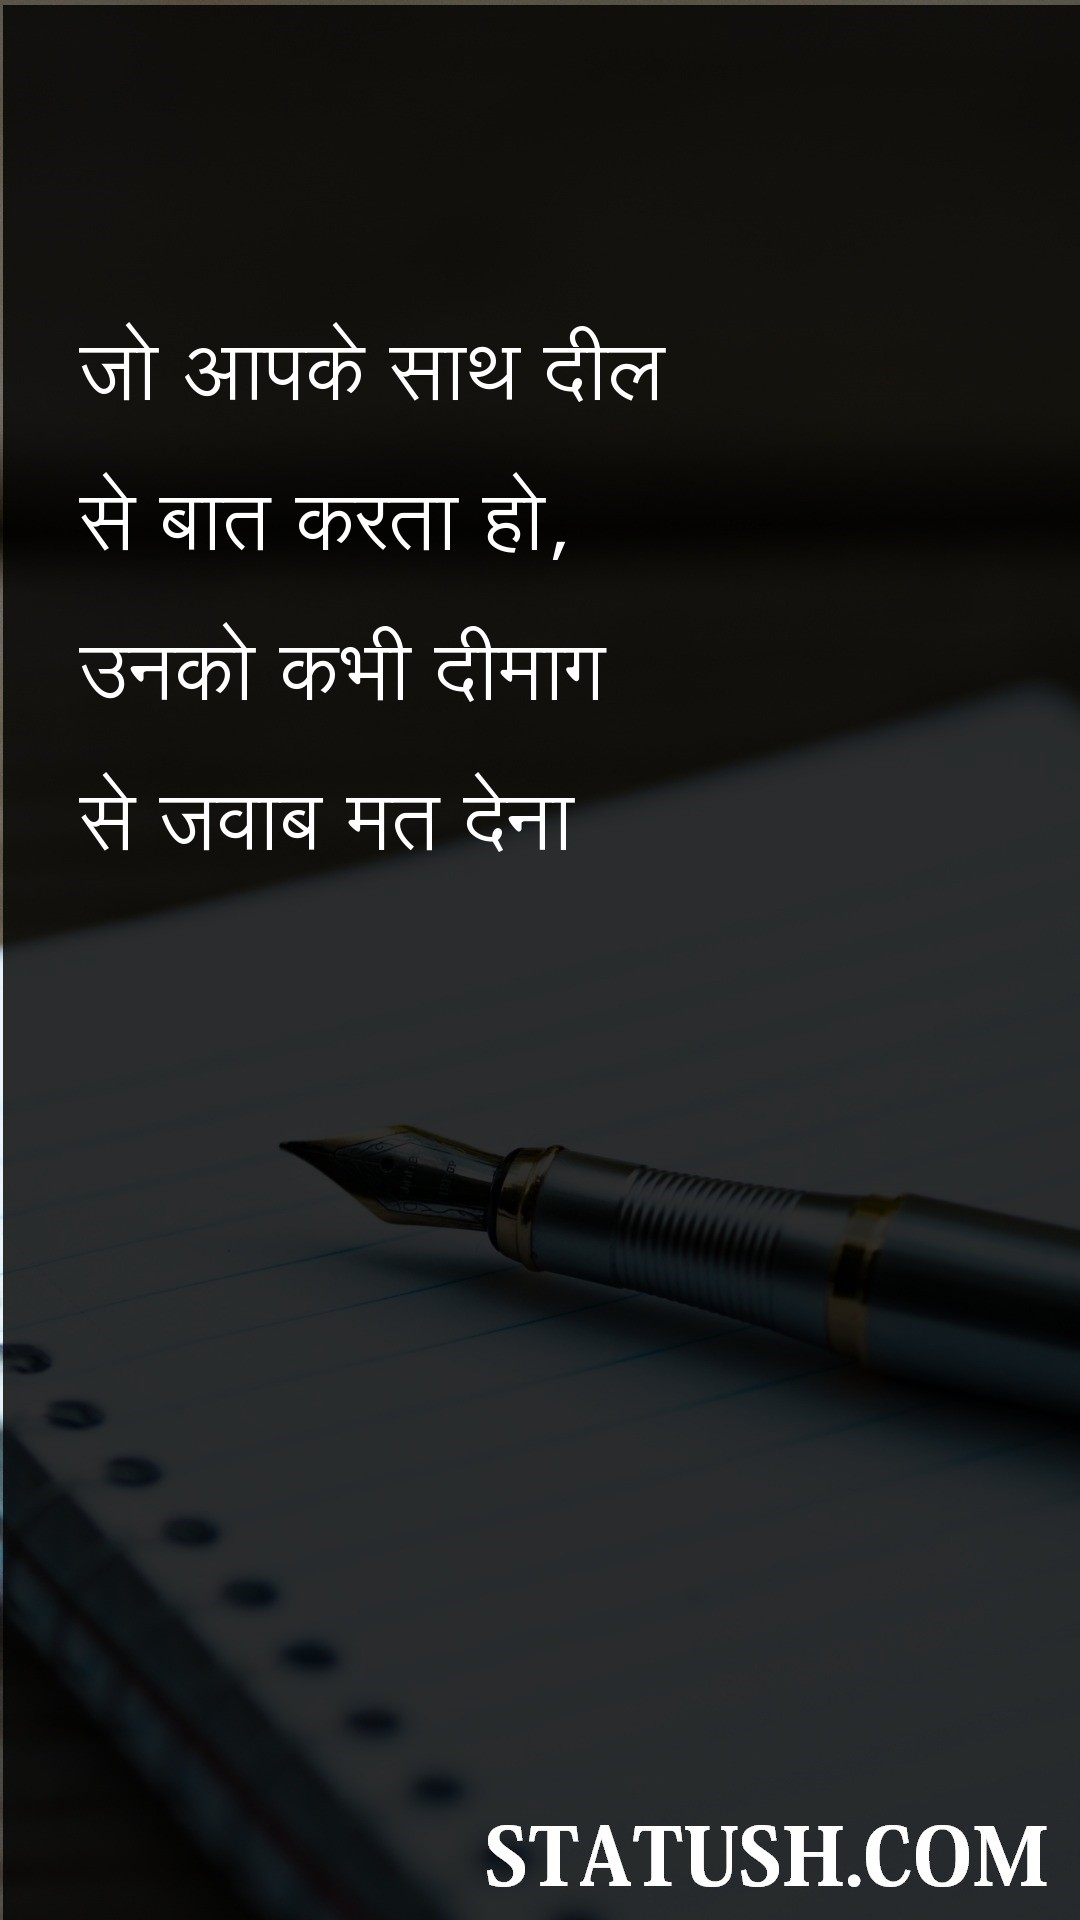 जो आपके साथ दील
से बात करता हो,
उनको कभी दीमाग
से जवाब मत देना
STATUSH.COM